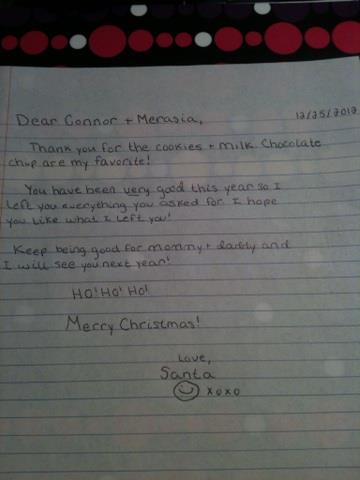 12/25/2012
Dear Connor + Merasia,
Thank you for the cookies + milk. Chocolate
chip are my favorite!
You have been very good this year so I
left you everything you asked for. I hope
you like what I left you!
Keep being good for mommy + daddy and
I will see you next year!
HO! HO! HO!
Merry Christmas!
Love,
Santa
xoxo